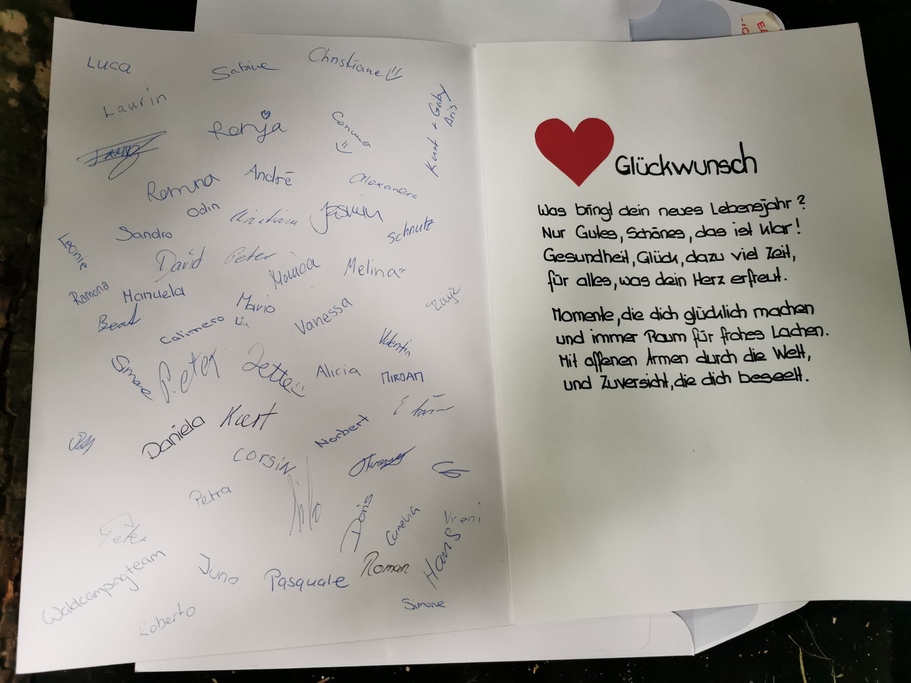 Luca
Sabine
Christiane
Laurin
Ronja
Kurt + Gaby
Romina
André
Alexandra
Odin
Sandro
schnutz
Leonie
David
Peter
Monica
Melina
Ramona
Manuela
Mario
Beat
Calimero
Vanessa
Valentin
Simone
Peter
Jette
Alicia
MIRJAM
Daniela
Kurt
Norbert
corsin
Petra
Doris
Cornelia
Vreni
Peter
Hans
Waldcampingteam
Juno
Pasquale
Roman
Simone
Roberto
Glückwunsch
Was bringt dein neues Lebensjahr?
Nur Gutes, Schönes, das ist klar!
Gesundheit, Glück, dazu viel Zeit,
für alles, was dein Herz erfreut.
Momente, die dich glücklich machen
und immer Raum für frohes Lachen.
Mit offenen Armen durch die Welt,
und Zuversicht, die dich beseelt.